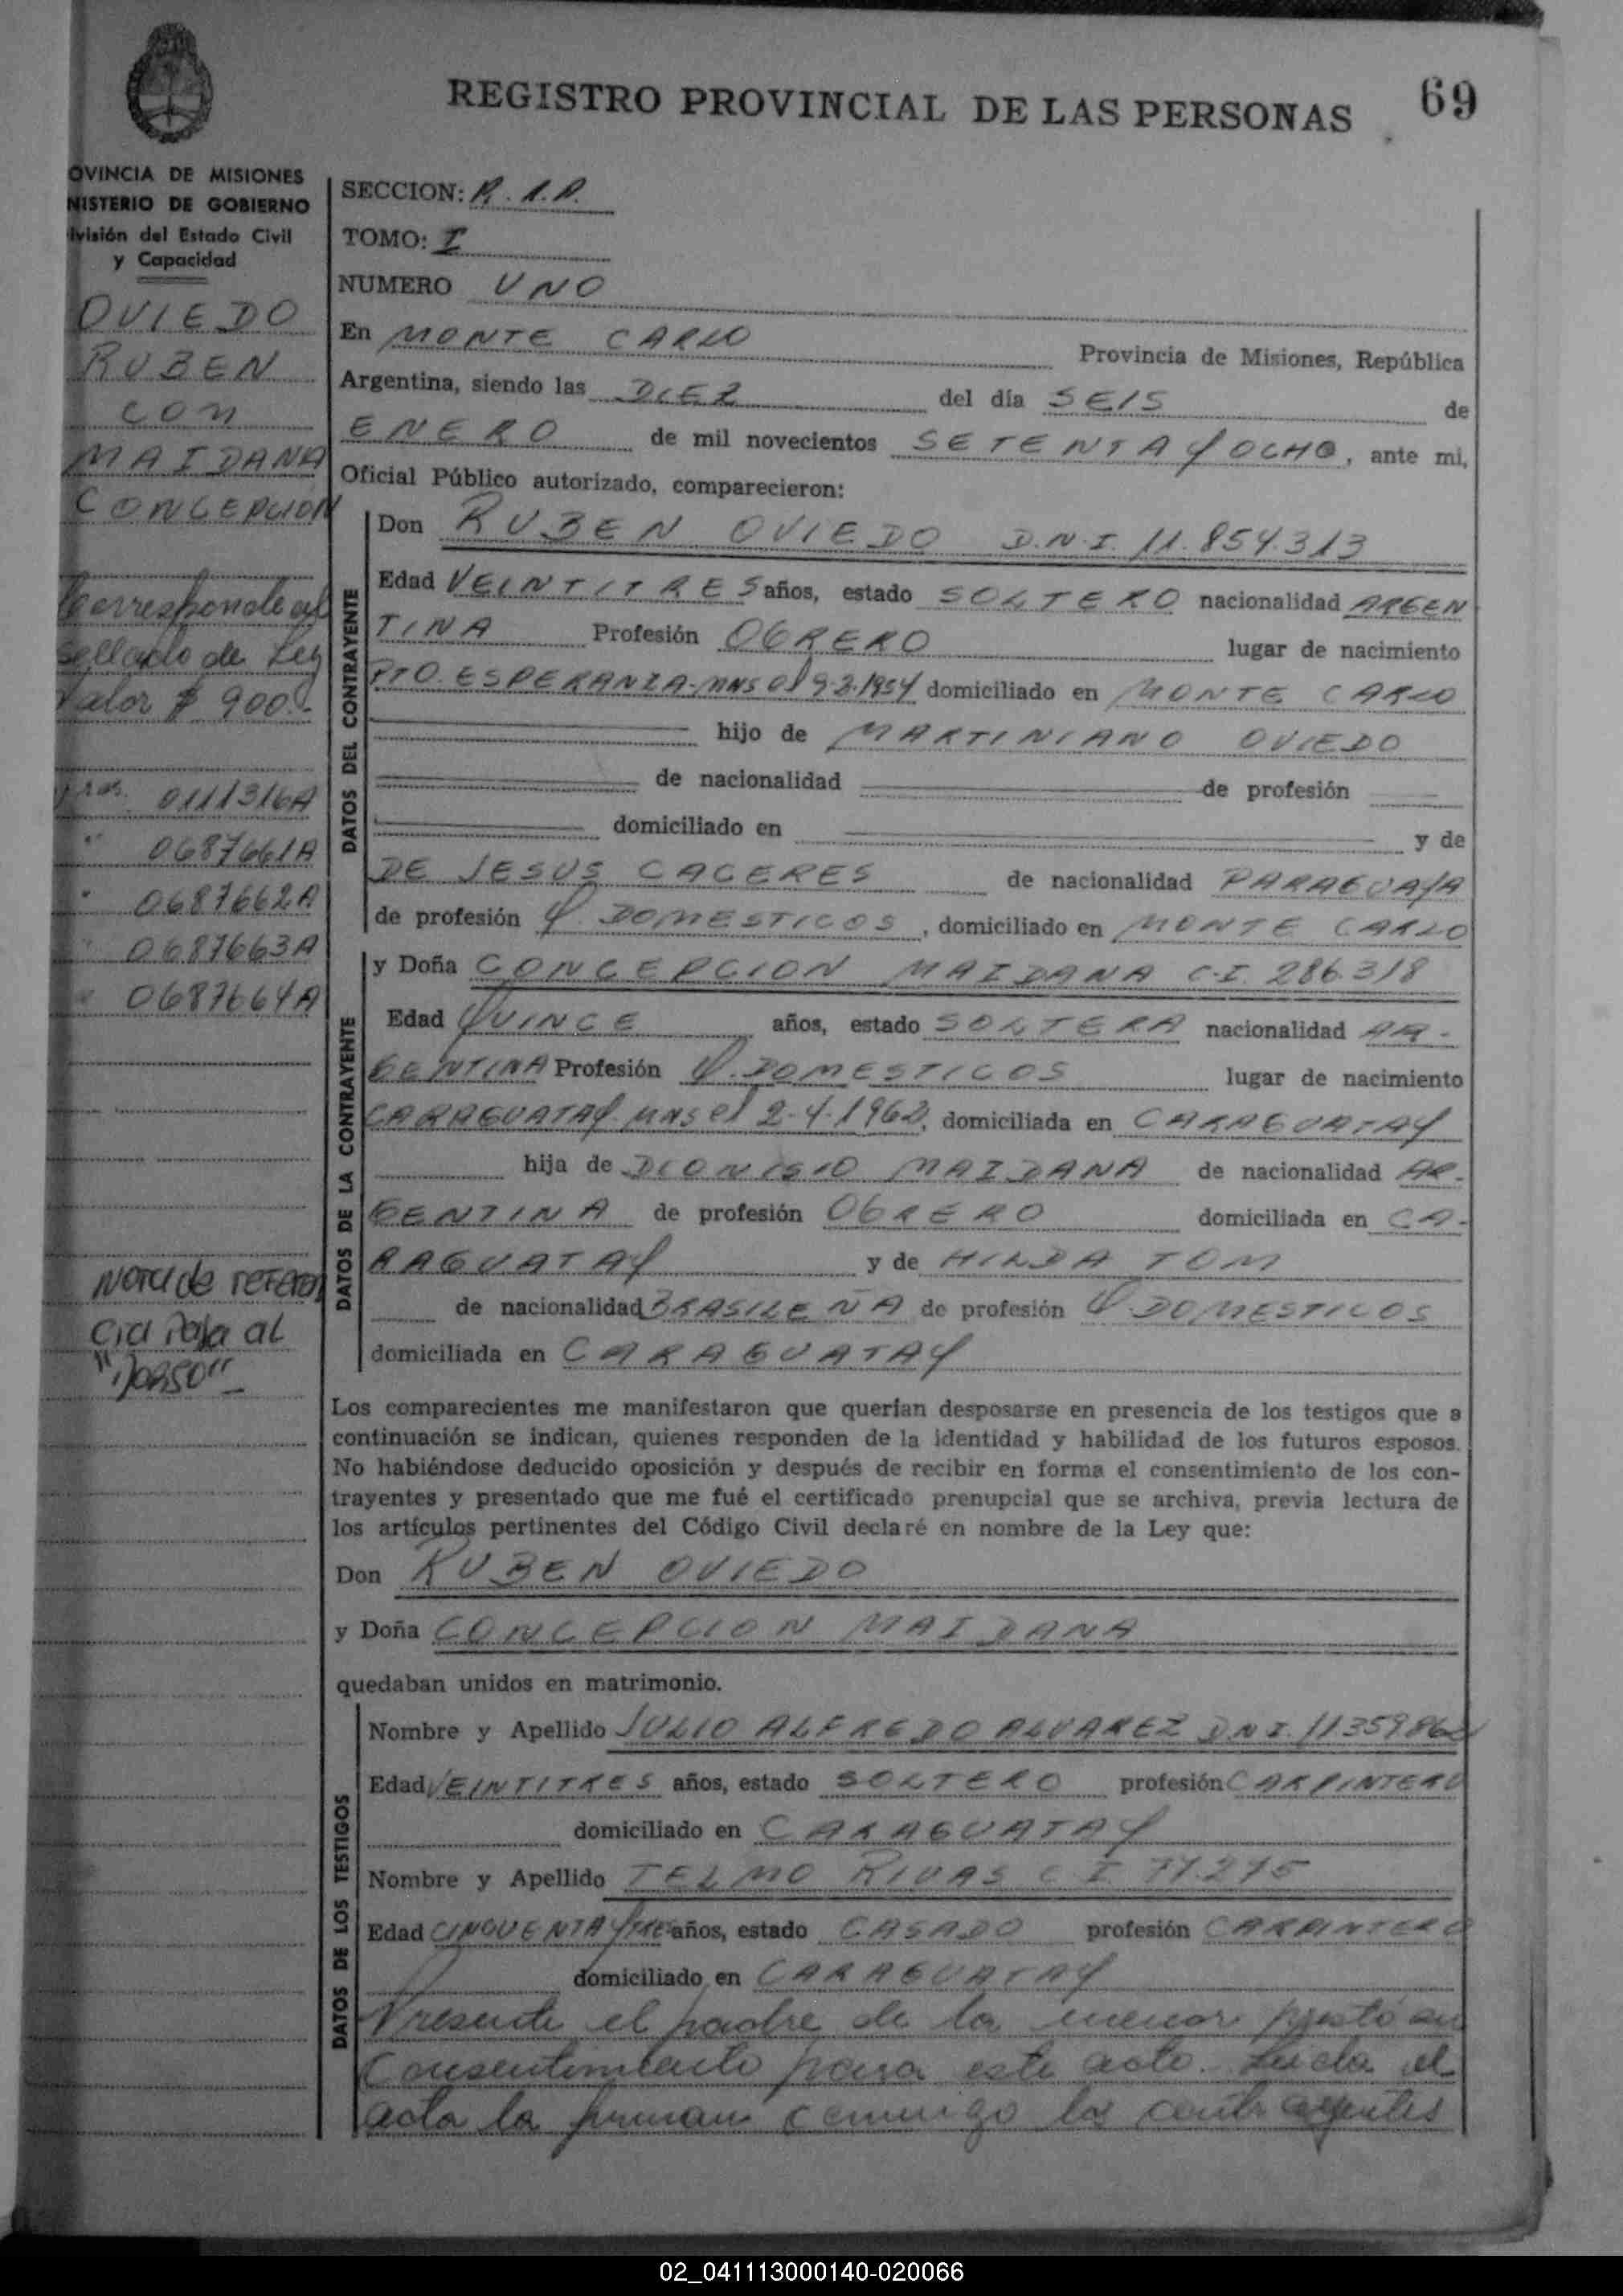 REGISTRO PROVINCIAL DE LAS PERSONAS
69
OVINCIA DE MISIONES
NISTERIO DE GOBIERNO
ivisión del Estado Civil
y Capacidad
OVIEDO
RUBEN
CON
MAIDANA
CONCEPCION
Corresponde al
sellado de Ley
Valor $ 900.-
0111316A
" 0687661A
" 0687662A
" 0687663A
" 0687664A
Nota de referen
cia pasa al
"Dorso"
SECCION:
TOMO: I
NUMERO UNO
En MONTE CARLO Provincia de Misiones, República
Argentina, siendo las DIEZ del día SEIS de
ENERO de mil novecientos SETENTA Y OCHO, ante mi,
Oficial Público autorizado, comparecieron:
DATOS DEL CONTRAYENTE
Don RUBEN OVIEDO D.N.I. 11.854.313
Edad VEINTITRES años, estado SOLTERO nacionalidad ARGEN
TINA Profesión OBRERO lugar de nacimiento
PTO. ESPERANZA-MNS el 9-2-1954 domiciliado en MONTE CARLO
hijo de MARTINIANO OVIEDO
de nacionalidad de profesión
domiciliado en y de
DE JESUS CACERES de nacionalidad PARAGUAYA
de profesión Q. DOMESTICOS, domiciliado en MONTE CARLO
DATOS DE LA CONTRAYENTE
y Doña CONCEPCION MAIDANA C.I. 286.318
Edad QUINCE años, estado SOLTERA nacionalidad AR-
GENTINA Profesión Q. DOMESTICOS lugar de nacimiento
CARAGUATAY MNS el 2-4-1962, domiciliada en CARAGUATAY
hija de DIONISIO MAIDANA de nacionalidad AR-
GENTINA de profesión OBRERO domiciliada en CA-
RAGUATAY y de HILDA TOM
de nacionalidad BRASILEÑA de profesión Q. DOMESTICOS
domiciliada en CARAGUATAY
Los comparecientes me manifestaron que querían desposarse en presencia de los testigos que a
continuación se indican, quienes responden de la identidad y habilidad de los futuros esposos.
No habiéndose deducido oposición y después de recibir en forma el consentimiento de los con-
trayentes y presentado que me fué el certificado prenupcial que se archiva, previa lectura de
los artículos pertinentes del Código Civil declaré en nombre de la Ley que:
Don RUBEN OVIEDO
y Doña CONCEPCION MAIDANA
quedaban unidos en matrimonio.
DATOS DE LOS TESTIGOS
Nombre y Apellido JULIO ALFREDO ALVAREZ D.N.I.
Edad VEINTITRES años, estado SOLTERO profesión CARPINTERO
domiciliado en CARAGUATAY
Nombre y Apellido TELMO RIVAS C.I. 77.275
Edad CINQUENTA Y TRES años, estado CASADO profesión CARPINTERO
domiciliado en CARAGUATAY
Presente el padre de la menor prestó su
consentimiento para este acto. Leida el
acta la firman conmigo los contrayentes
02_041113000140-020066